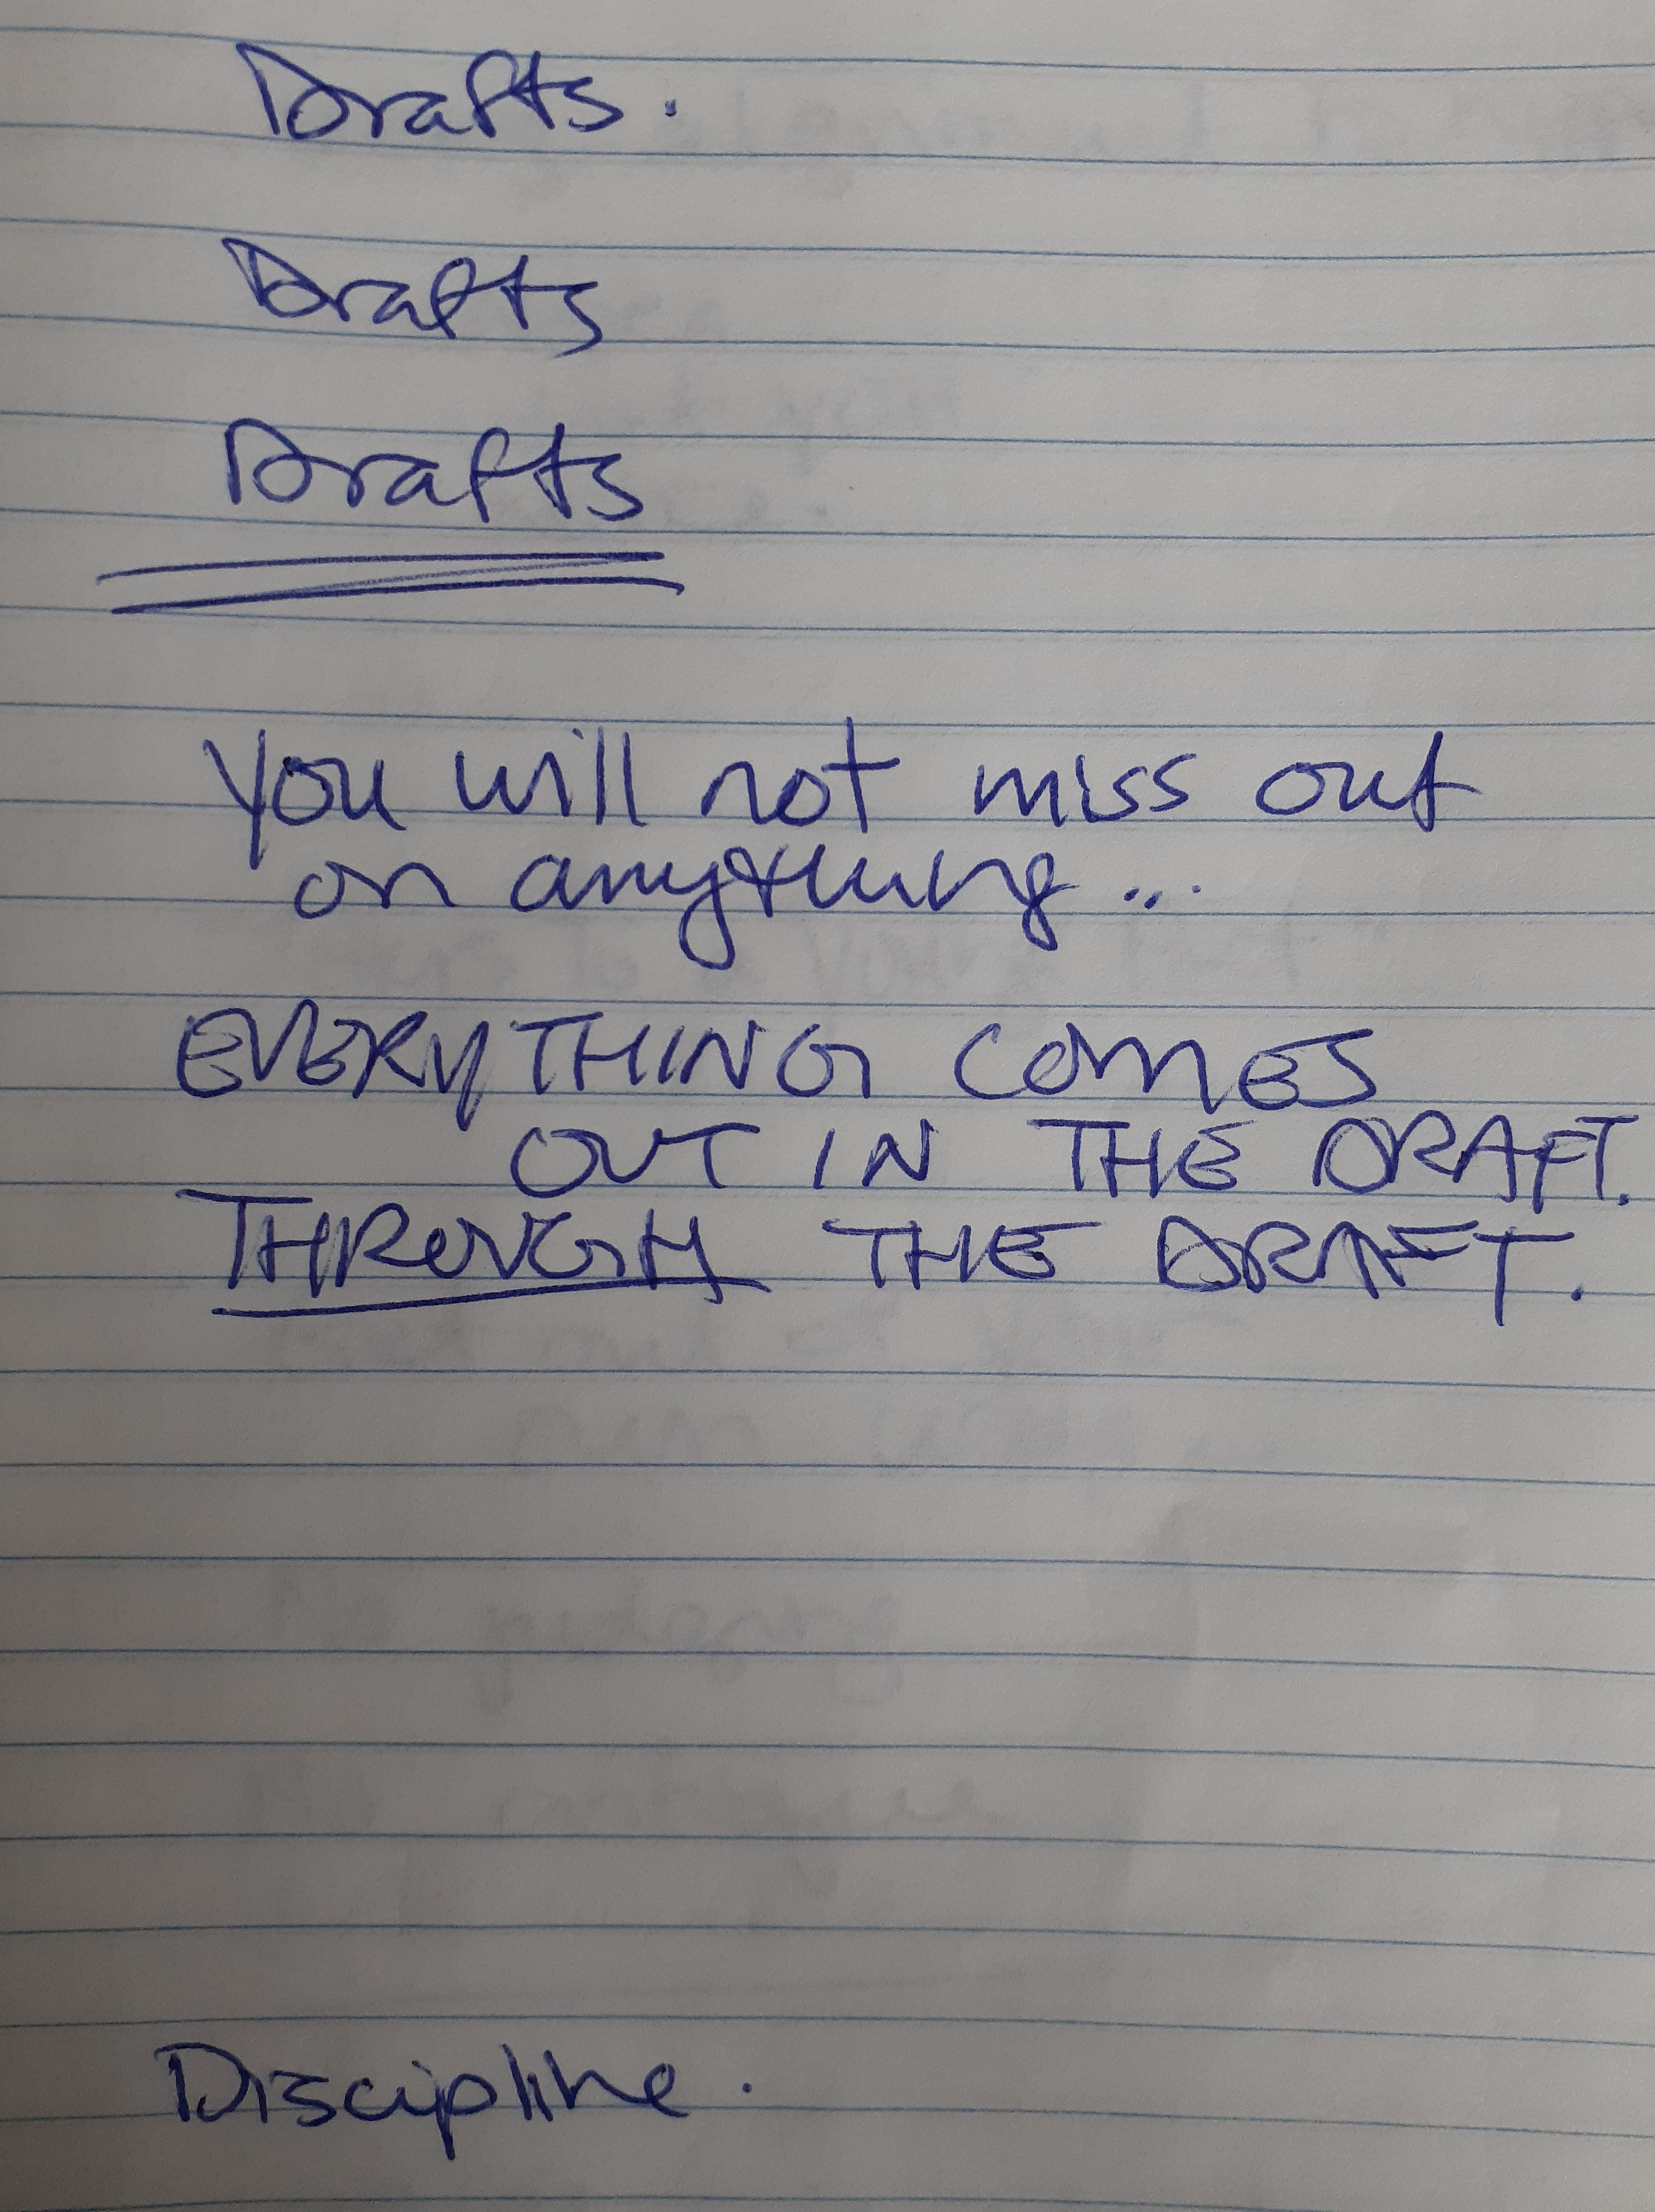 Drafts.
Drafts
Drafts
You will not miss out
on anything...
EVERYTHING COMES
OUT IN THE DRAFT.
THROUGH THE DRAFT.
Discipline.